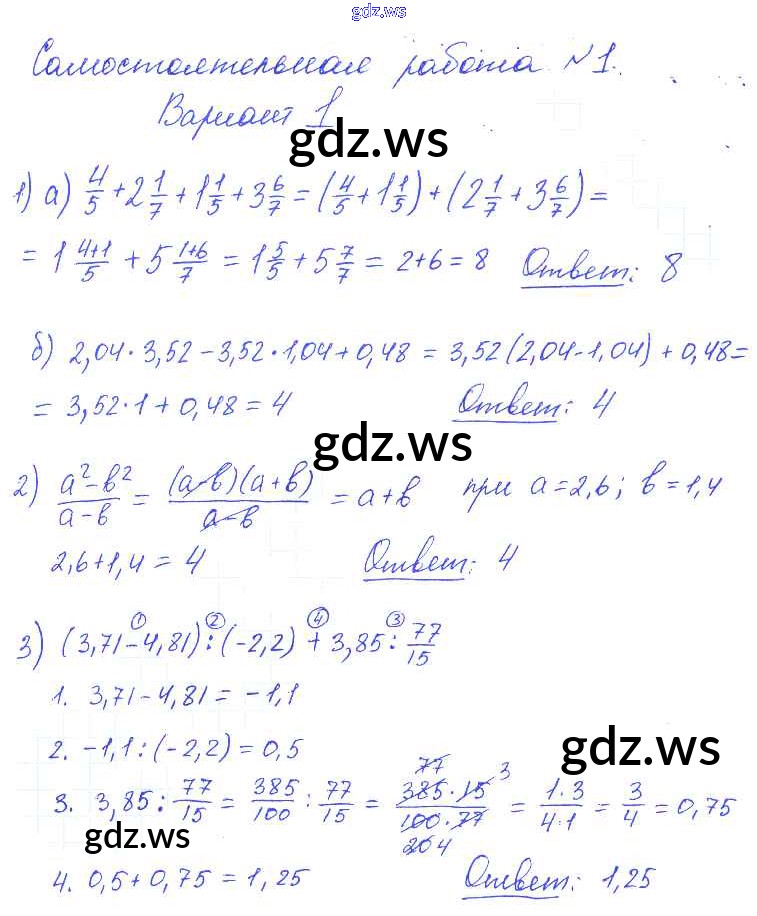 gdz.ws
Самостоятельная работа №1.
Вариант 1
gdz.ws
1) а) 4/5 + 2 1/7 + 1 1/5 + 3 6/7 = (4/5 + 1 1/5) + (2 1/7 + 3 6/7) =
= 1 4+1/5 + 5 1+6/7 = 1 5/5 + 5 7/7 = 2+6 = 8 Ответ: 8
б) 2,04 · 3,52 - 3,52 · 1,04 + 0,48 = 3,52 (2,04 - 1,04) + 0,48 =
= 3,52 · 1 + 0,48 = 4 Ответ: 4
gdz.ws
2) a² - b² / a - b = (a-b)(a+b) / a-b = a+b при a=2,6; b=1,4
2,6+1,4 = 4 Ответ: 4
① ② ④ ③
3) (3,71 - 4,81) : (-2,2) + 3,85 : 77/15
1. 3,71 - 4,81 = -1,1
gdz.ws
2. -1,1 : (-2,2) = 0,5
77 3
3. 3,85 : 77/15 = 385/100 : 77/15 = 385 · 15 / 100 · 77 = 1·3/4·1 = 3/4 = 0,75
20 4
gdz.ws
4. 0,5 + 0,75 = 1,25 Ответ: 1,25